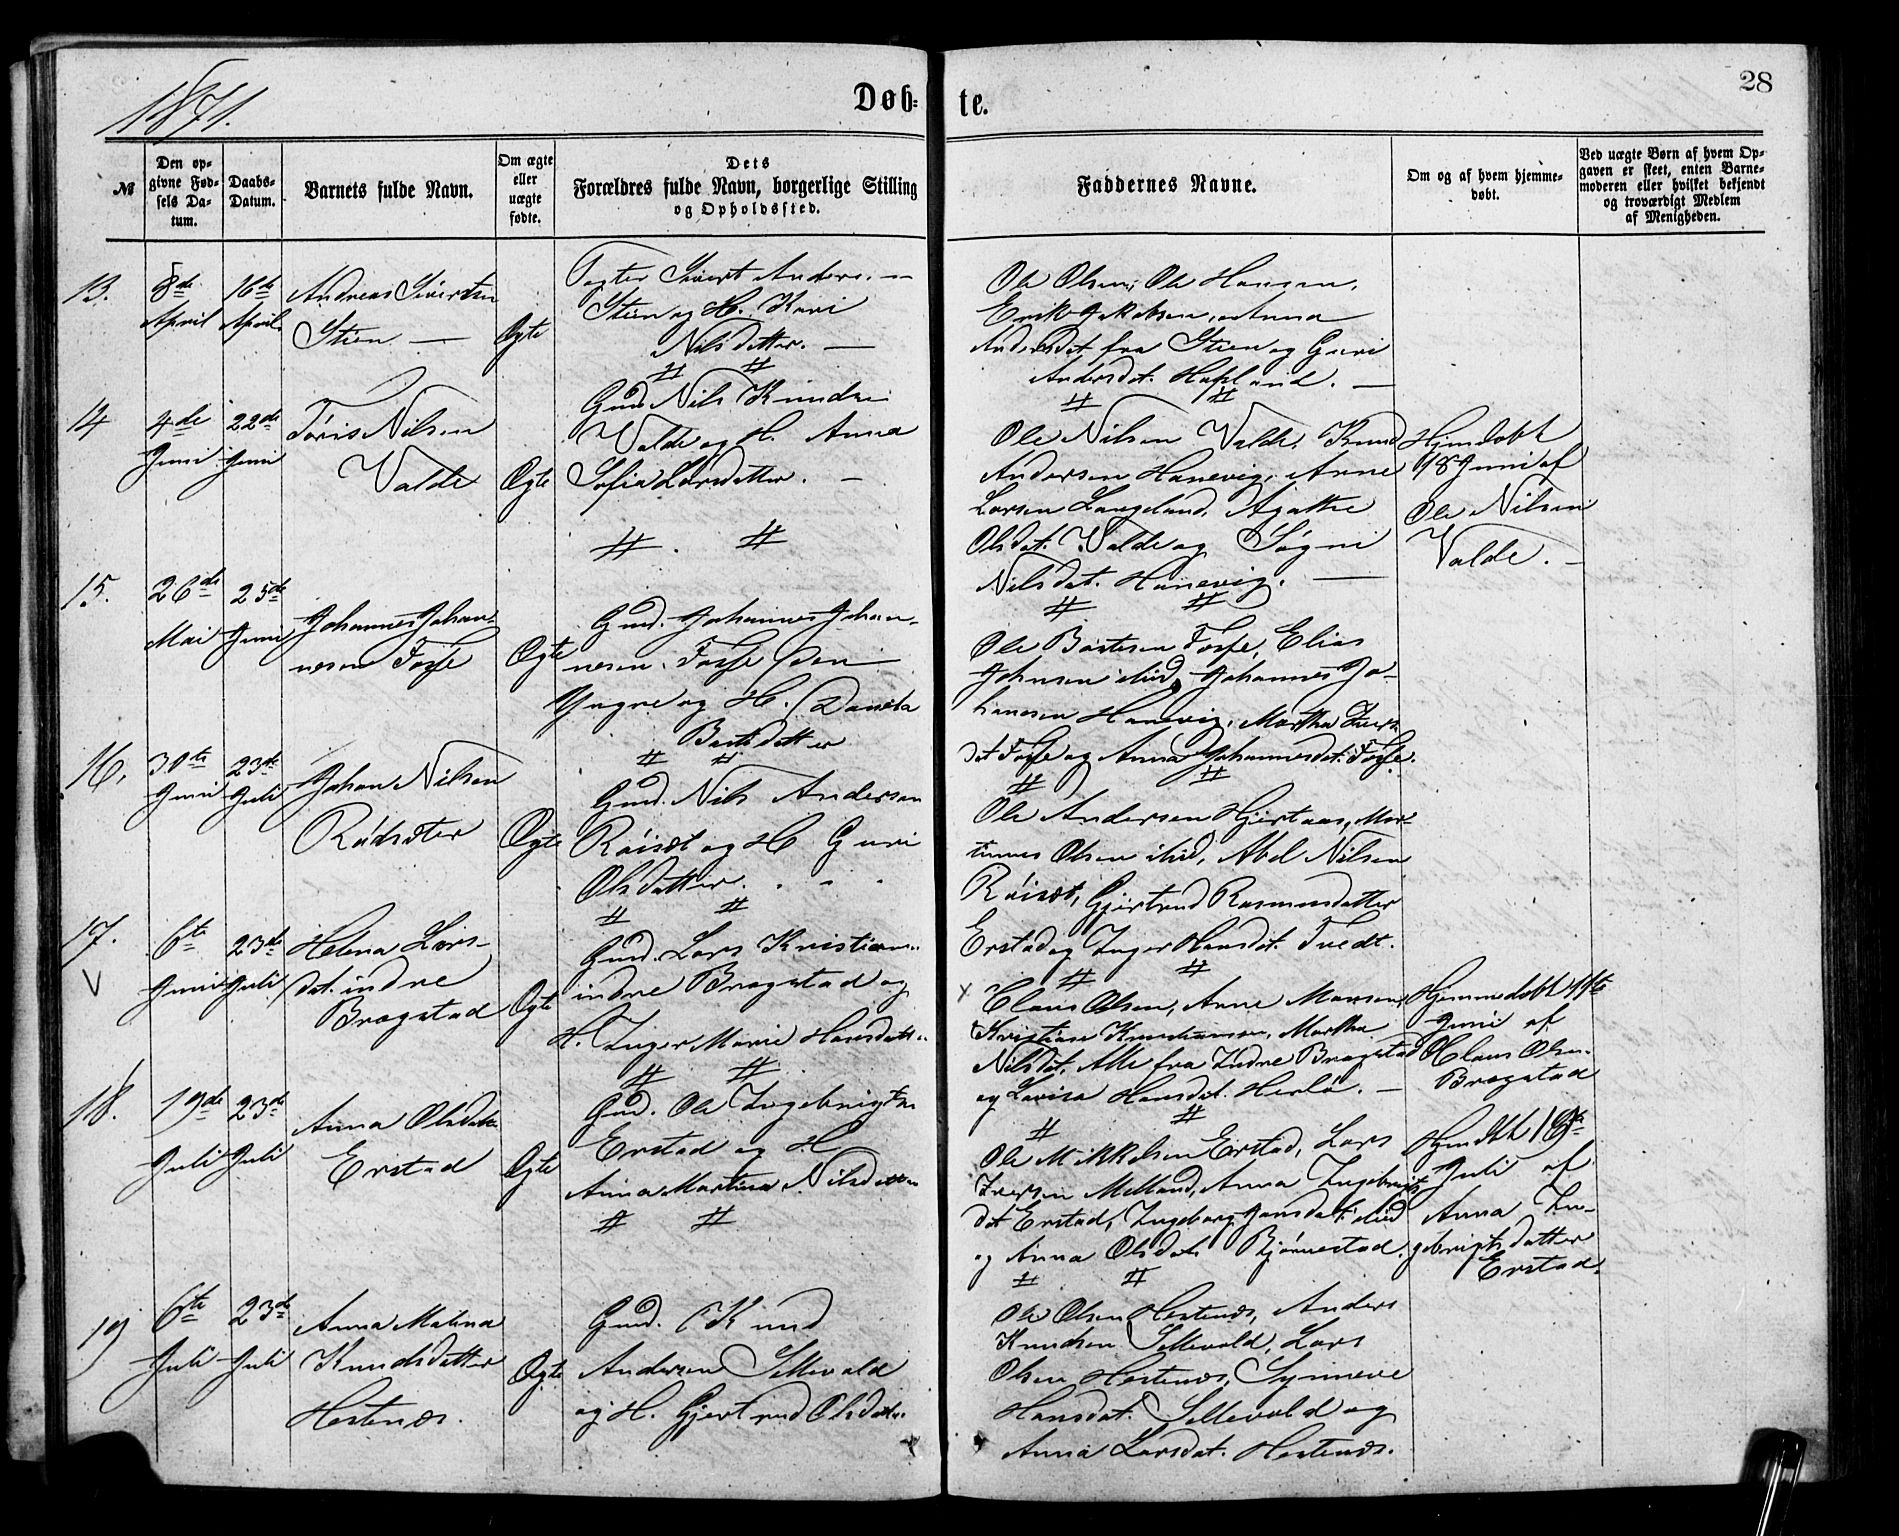 28
1871.
Døb-
te.
№
Den op-
givne Fød-
sels Da-
tum.
Daabs-
Datum.
Barnets fulde Navn.
Om ægte
eller
uægte
fødte.
Dets
Forældres fulde Navn, borgerlige Stilling
og Opholdssted.
Faddernes Navne.
Om og af hvem hjemme-
døbt.
Ved uægte Børn af hvem Op-
gaven er skeet, enten Barne-
moderen eller hvilket bekjendt
og troværdigt Medlem
af Menigheden.
13.
8de
April
16de
April.
Andreas Sivertsen
Stien
Ægte
Sivert Anders.
Stien og H. Kari
Nilsdatter.
Ole Olsen, Ole Hansen,
Erik Jakobsen, Anna
Andersdat. fra Stien og Guri
Andersdat. Hopland.
14
4de
Juni
22de
Juni
Nilsen
Valde
Ægte
Gmd Nils Knudsen
Valde og H. Anna
Sofia Larsdatter.
Ole Nilsen Valde, Knud
Andersen Hanevig, Arne
Larsen Langeland, Agathe
Olsdat. Valde og Søgni
Nilsdat. Hanevig.
Hjemdøbt
18 Juni af
Ole Nilsen
Valde.
15.
26de
Mai
25de
Juni
Johannes Johan-
nesen Fosse
Ægte
Gmd. Johannes Johan-
nesen Fosse den
Yngre og H.
Ole Fosse, Elias
Johnsen ibid, Johannes Jo-
hannesen Hanevig, Martha
dat Fosse og Anna Johannesdat. Fosse.
16.
30te
Juni
23de
Juli
Johan Nilsen
Rødsæter
Ægte
Gmd. Nils Andersen
Røisæt og H Guri
Olsdatter.
Ole Andersen Hjertaas, Mar-
tinus Olsen ibid, Abel Nilsen
Røisæt, Gjertrud Rasmusdatter
Erstad og Inger Hansdat. Tvedt.
17.
6te
Juni
23de
Juli
Helena Lars-
dat. indre
Brægstad
Ægte
Gmd. Lars Kristian.
indre Brægstad og
H. Inger Marie Hansdatt.
Claus Olsen, Arne Monsen,
Martha
Nilsdat. Alle fra Indre Brægstad
og Lovisa Hansdat. Herlø.
Hjemmedøbt 11te
Juni af
Claus Olsen
Brægstad
18.
19de
Juli
23de
Juli
Anna Olsdatter
Erstad
Ægte
Gmd. Ole Ingebrigts.
Erstad og H
Anna Martina Nilsdatter
Ole Mikkelsen Erstad, Lars
Iversen Melland, Anna Ingebrigts
dat Erstad, Ingeborg Jonsdat. ibid
og Anna Olsdat. Bjørnestad.
19de
Juli af
Anna In-
gebrigtsdatter
Erstad.
19
6te
Juli
23de
Juli
Anna Malina
Knudsdatter
Hestenæs.
Ægte
Gmd. Knud
Andersen Sellevold
og H. Gjertrud Olsdatt.
Ole Olsen Hestenæs, Anders
Knudsen Sellevold, Lars
Olsen Hestenæs, Synneve
Hansdat. Sellevold og
Anna Larsdat. Hestenæs.